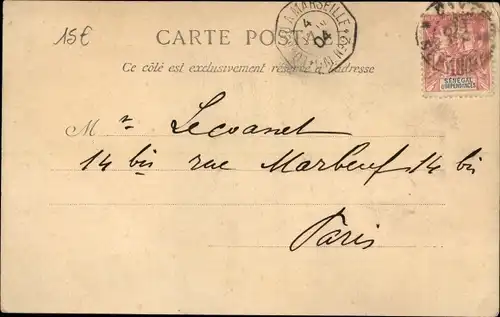 15€
CARTE POSTALE
Ce côté est exclusivement réservé à l'adresse
A MARSEILLE
4
04
SÉNÉGAL
ET DÉPENDANCES
Mr Lecoanet
14 bis rue Marbeuf 14 bis
Paris